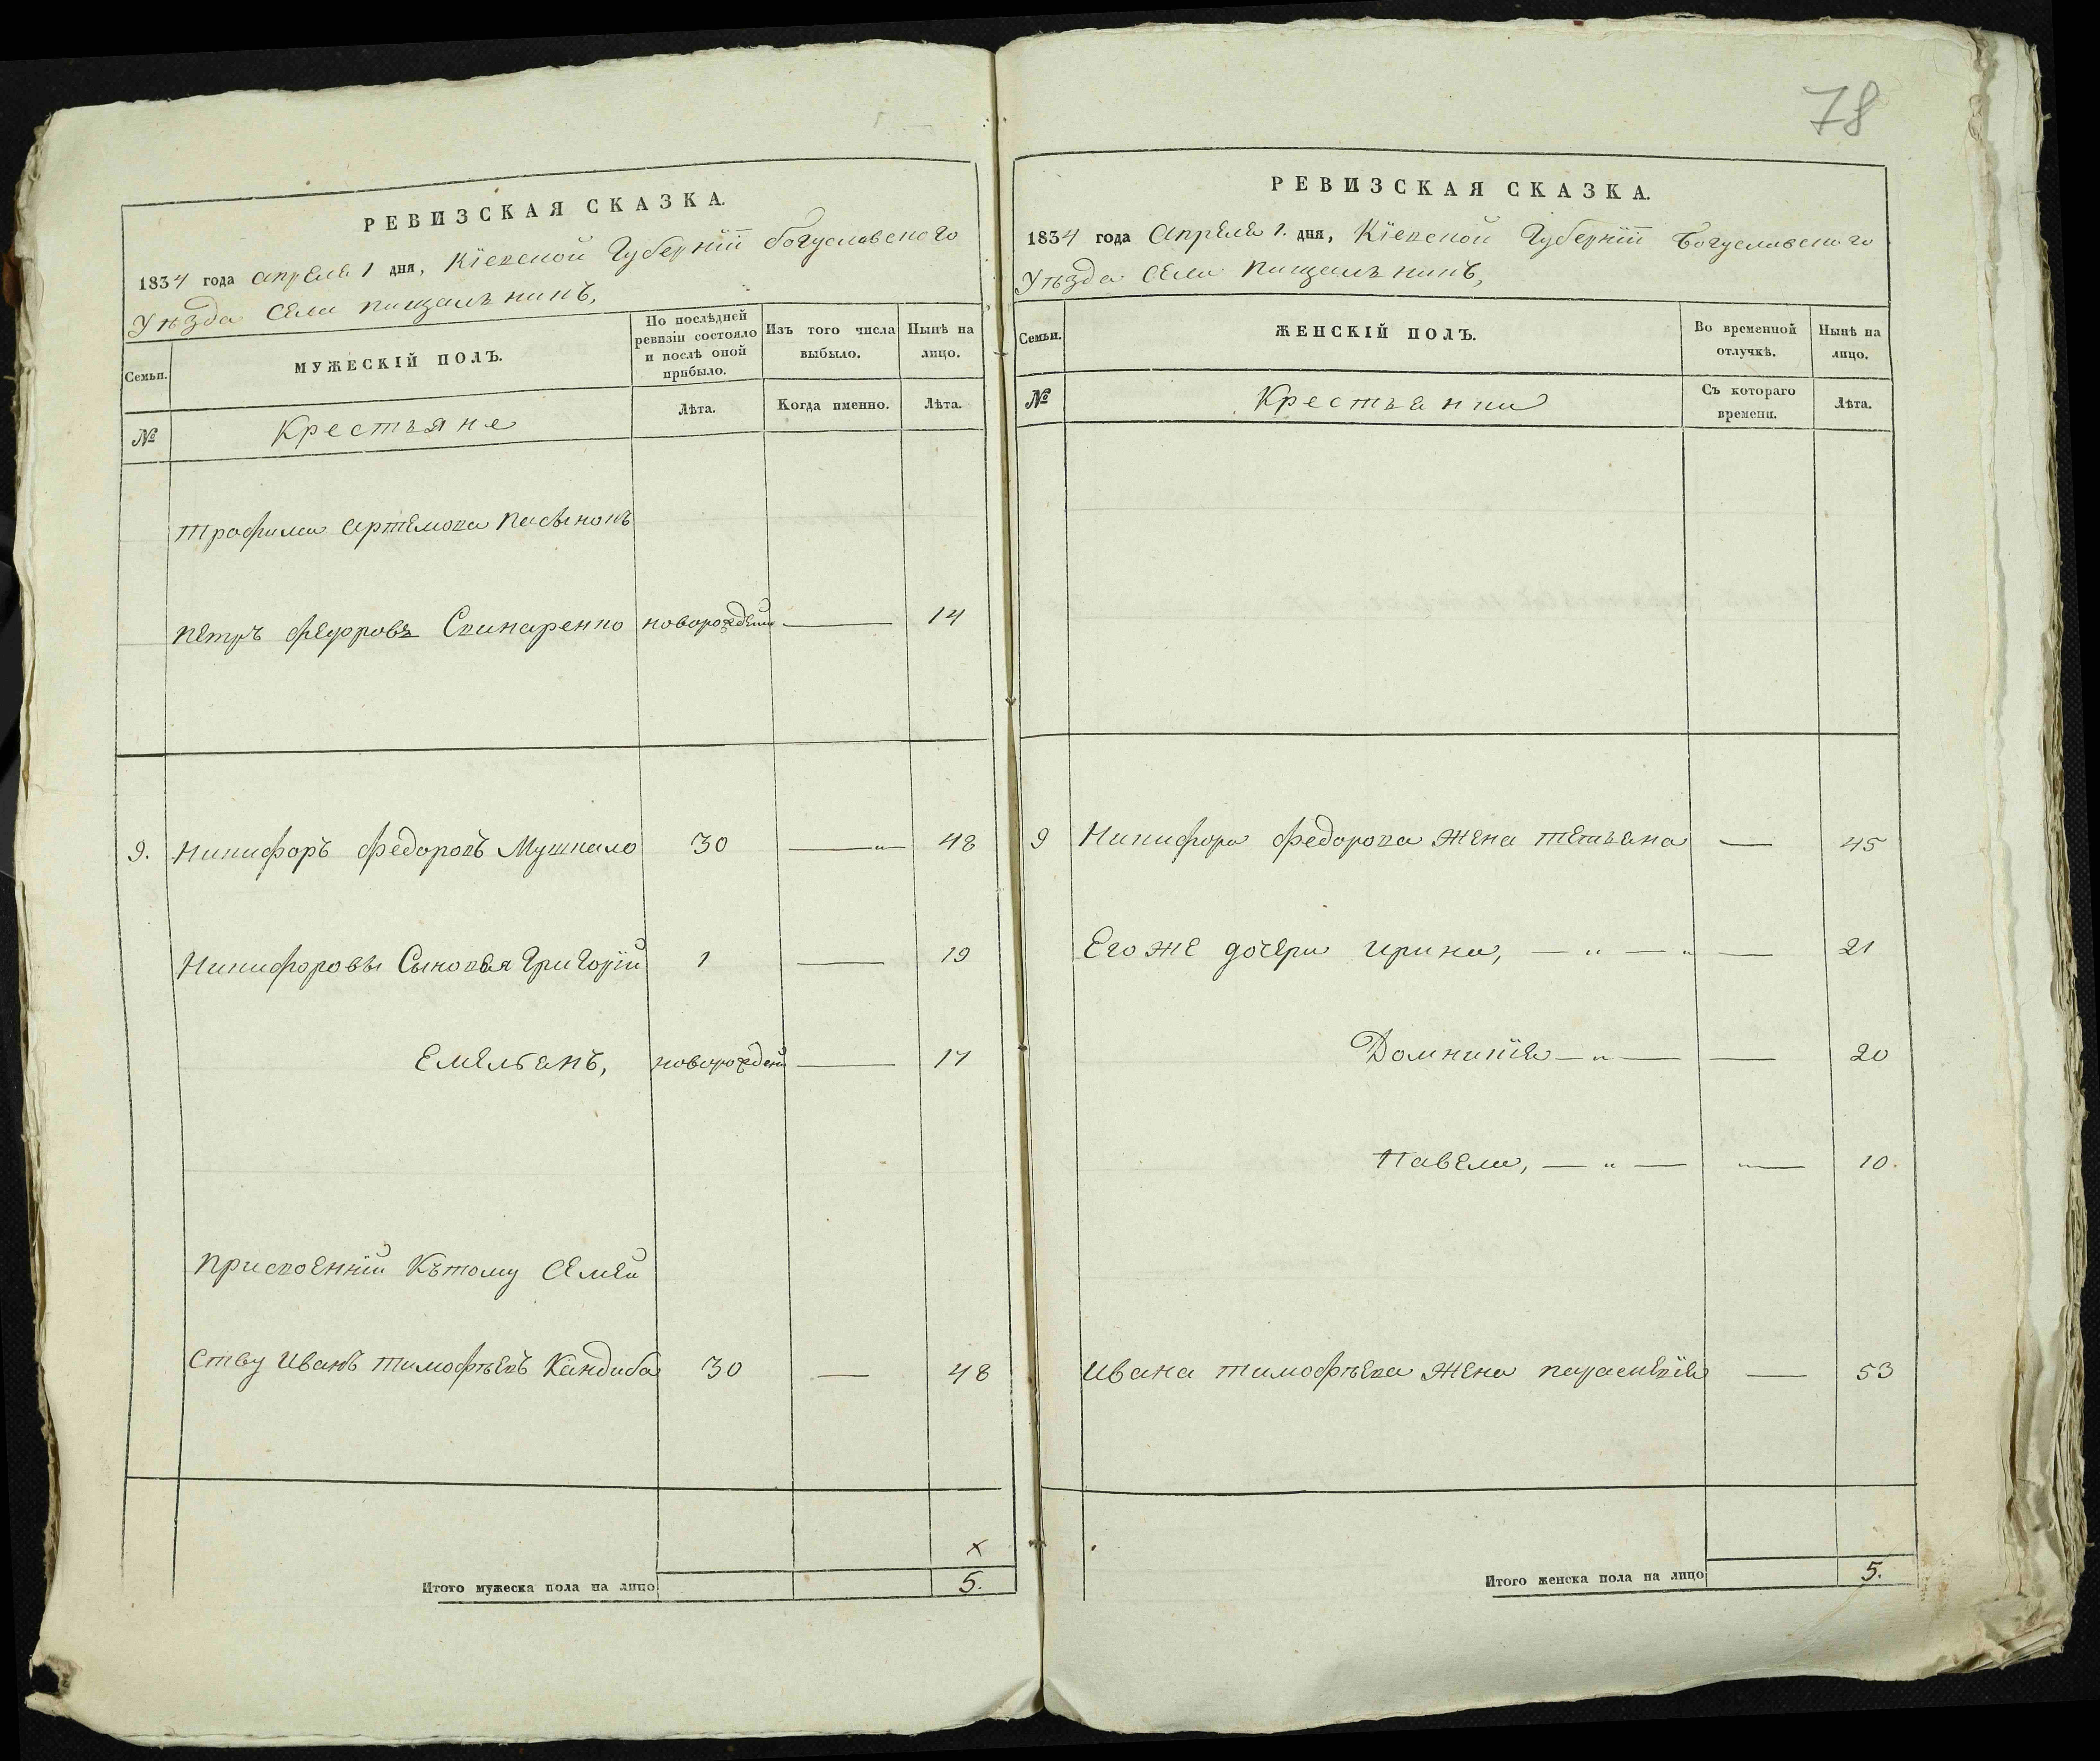 78
РЕВИЗСКАЯ СКАЗКА.
1834 года Апреля 1 дня, Кіевской Губерніи Богуславского
Уѣзда Села Пищальникъ,
Семьи. МУЖЕСКІЙ ПОЛЪ. По послѣдней ревизіи состояло и послѣ оной прибыло. Изъ того числа выбыло. Нынѣ на лицо.
№ Крестьяне Лѣта. Когда именно. Лѣта.
Трофима Артемова Пасынокъ
Петръ Федоровъ Свинаренко новорожденн — 14
9. Никифоръ Федоровъ Мушкало 30 — " — 48
Никифоровы Сыновья Григорій 1 — 19
Емельянъ, новорожден — 17
Присвоенній Къ тому Семей
ству Иванъ Тимофѣевъ Кандиба 30 — 48
х
Итого мужеска пола на лицо 5.
РЕВИЗСКАЯ СКАЗКА.
1834 года Апреля 1. дня, Кіевской Губерніи Богуславского
Уѣзда Села Пищальникъ,
Семьи. ЖЕНСКІЙ ПОЛЪ. Во временной отлучкѣ. Нынѣ на лицо.
№ Крестьянки Съ котораго времени. Лѣта.
9 Никифора Федорова Жена Татьяна — 45
Его же дочери Ирина, — " — " — 21
Домникія — " — — 20
Павела, — " — " — 10.
Ивана Тимофѣева Жена Параскевія — 53
Итого женска пола на лицо 5.